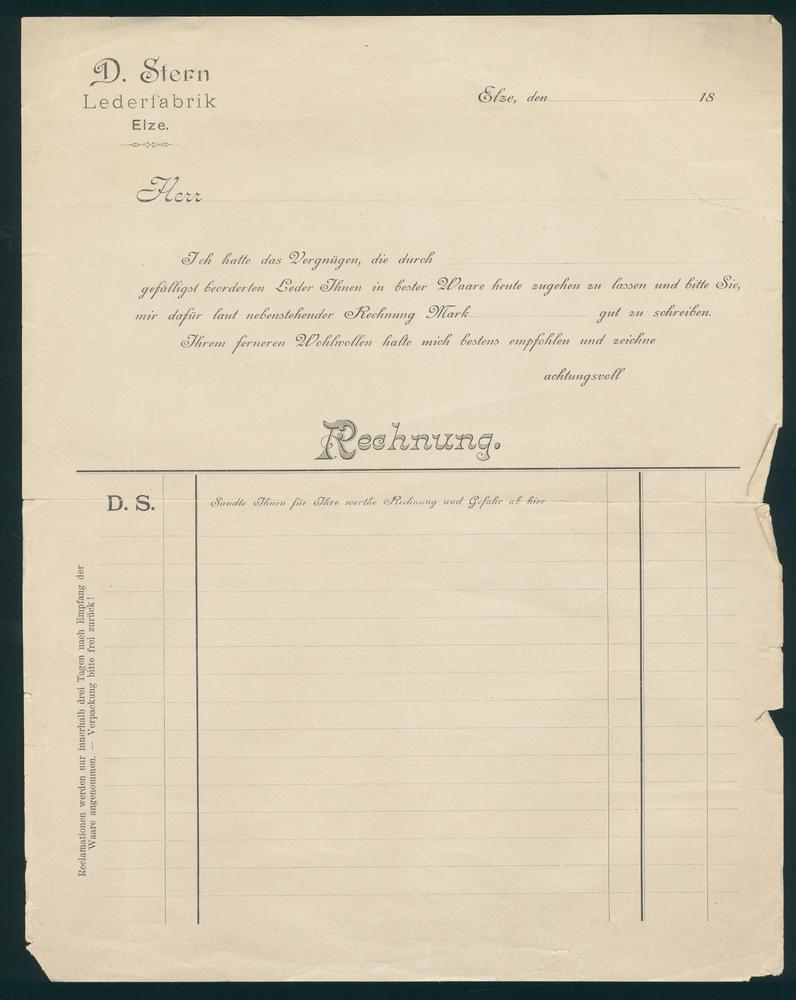 D. Stern
Lederfabrik
Elze.
Elze, den 18
Herr
Ich hatte das Vergnügen, die durch
gefälligst beorderten Leder Ihnen in bester Waare heute zugehen zu lassen und bitte Sie,
mir dafür laut nebenstehender Rechnung Mark gut zu schreiben.
Ihrem ferneren Wohlwollen halte mich bestens empfohlen und zeichne
achtungsvoll
Rechnung.
D. S.
Sandte Ihnen für Ihre werthe Rechnung und Gefahr ab hier
Reclamationen werden nur innerhalb drei Tagen nach Empfang der
Waare angenommen. — Verpackung bitte frei zurück!